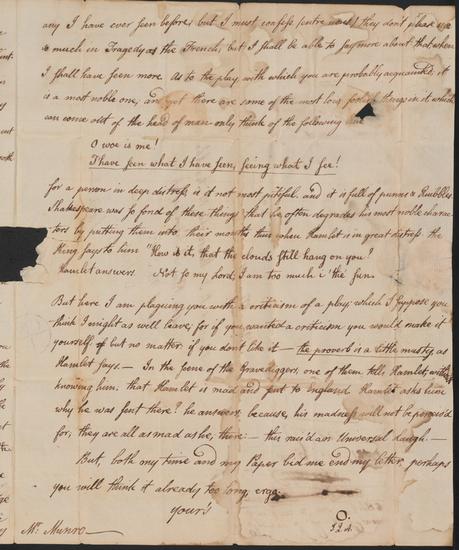 any I have ever seen before, but I must confess (entre nous) they don't please me
so much in Tragedy as the French, but I shall be able to say more about that when
I shall have seen more. As to the play with which you are probably acquainted, it
is a most noble one, and yet there are some of the most low foolish things in it which
can come out of the head of man only think of the following line
O woe is me!
T'have seen what I have seen, seeing what I see!
for a person in deep distress is it not most pitiful. and it is full of punns &
Shakespeare was so fond of these things that he often degrades his most noble charac-
ters by putting them into their months thus when Hamlet is in great distress the
King says to him "How is it, that the clouds still hang on you!
Hamlet answers. Not so my Lord, I am too much i' the sun.
But here I am plaguing you with a criticism of a play; which I suppose you
think I might as well leave; for if you wanted a criticism you would make it
yourself but no matter if you don't like it — the proverb is a little musty, as
Hamlet says. — In the scene of the Gravediggers, one of them tells, Hamlet, without
knowing him. that Hamlet is mad and sent to England Hamlet asks him
why he was sent there? he answers, because, his madness will not be perceiv'd
for, they are all as mad as he, there: — this rais'd an Universal laugh. —
But, both my time and my Paper bid me end my letter, perhaps
you will think it already too long, ergo.
yours
O:
Mr. Munro —